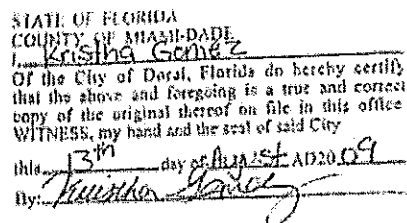 STATE OF FLORIDA
COUNTY OF MIAMI-DADE
I, Kristha Gomez
Of the City of Doral, Florida do hereby certify
that the above and foregoing is a true and correct
copy of the original thereof on file in this office
WITNESS, my hand and the seal of said City
this 13th day of August AD20 09
By: